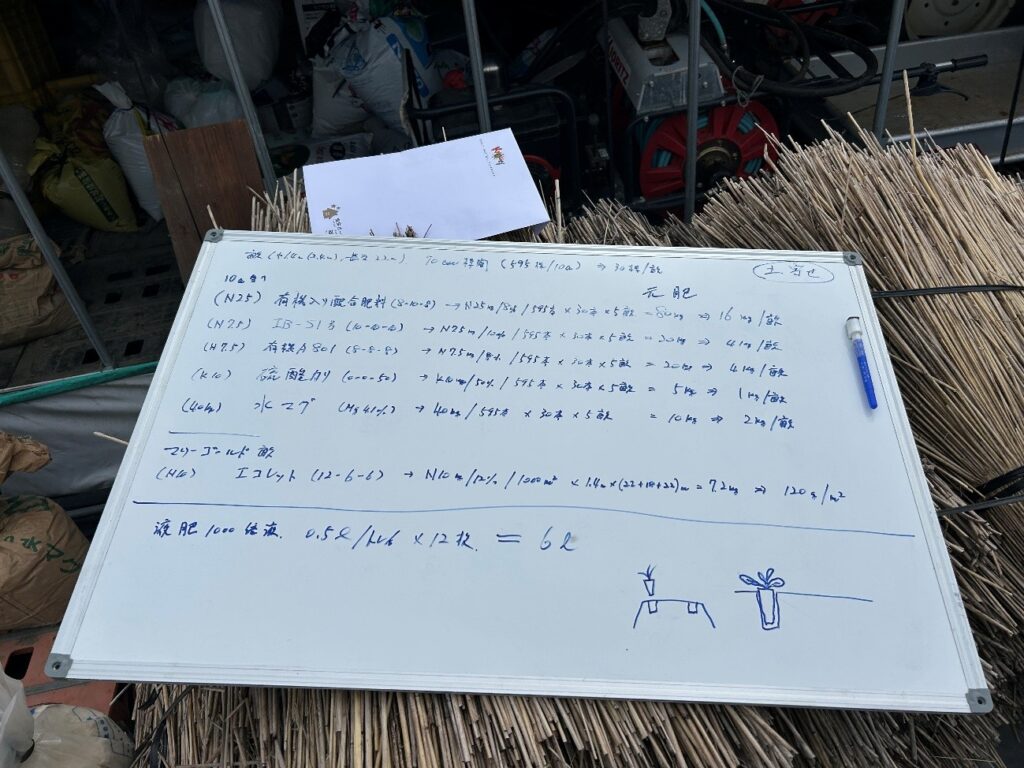 畝(巾1.4m(2.4m), 長さ22m) 70cm 株間 (595株/10a) ⇒ 30株/畝
元肥
10a当り
(N25) 有機入り配合肥料(8-10-8) → N25kg/8% / 595本 × 30本 × 5畝 = 80kg ⇒ 16kg/畝
(N7.5) IB-S1号 (10-10-10) → N7.5kg/10% / 595本 × 30本 × 5畝 = 20kg ⇒ 4kg/畝
(N7.5) 有機A801 (8-8-8) → N7.5kg/8% / 595本 × 30本 × 5畝 = 20kg ⇒ 4kg/畝
(K10) 硫酸カリ (0-0-50) → K10kg/50% / 595本 × 30本 × 5畝 = 5kg ⇒ 1kg/畝
(40kg) 水マグ (Mg 41%) → 40kg / 595本 × 30本 × 5畝 = 10kg ⇒ 2kg/畝
マリーゴールド畝
(N10) エコレット (12-6-6) → N10kg/12% / 1000m² × 1.4m × (22+18+22)m = 7.2kg ⇒ 120g/m²
液肥 1000倍液. 0.5ℓ/トレイ × 12枚. = 6ℓ